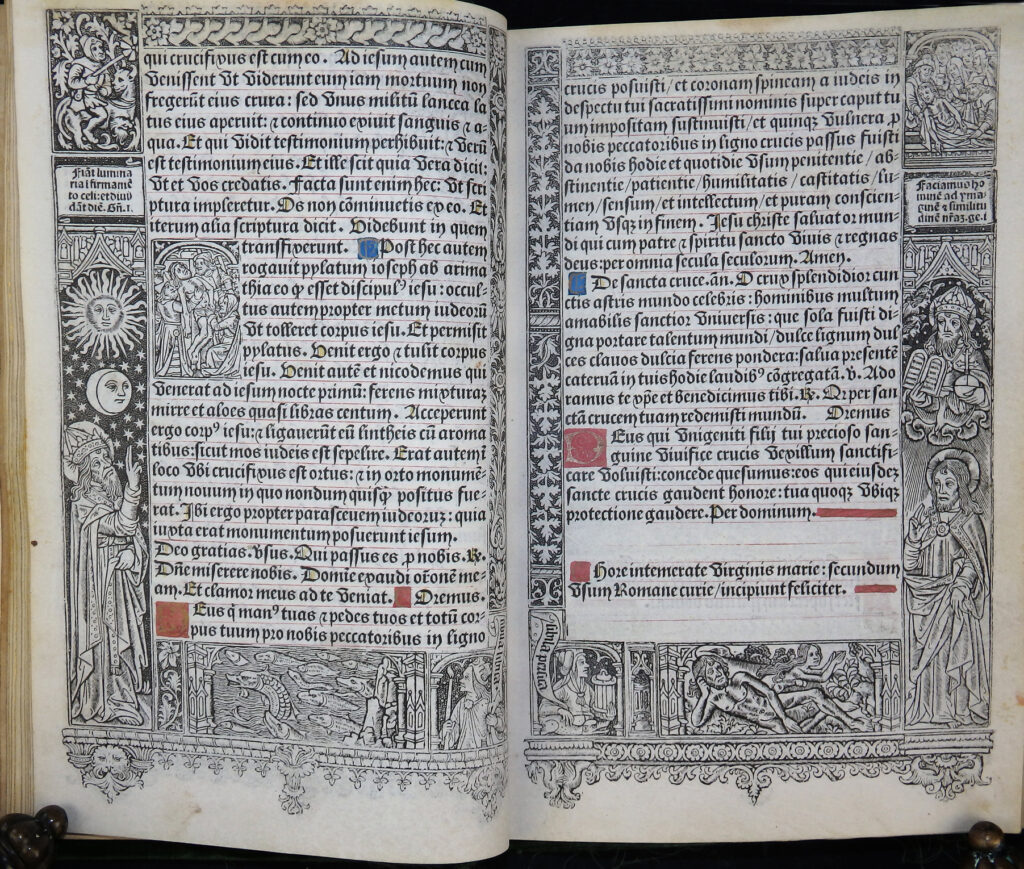 qui crucifixus est cum eo. Ad iesum autem cum
venissent vt viderunt eum iam mortuum non
fregerūt eius crura: sed vnus militū lancea la
tus eius aperuit: ⁊ continuo exiuit sanguis ⁊ a-
qua. Et qui vidit testimonium perhibuit: ⁊ verū
est testimonium eius. Et ille scit quia vera dicit:
vt et vos credatis. Facta sunt enim hec: vt scri
ptura impleretur. Os non cōminuetis ex eo. Et
iterum alia scriptura dicit. Videbunt in quem
transfixerunt. Post hec autem
rogauit pylatum ioseph ab arima
thia eo ꝙ esset discipulꝰ iesu: occul-
tus autem propter metum iudeorū
vt tolleret corpus iesu. Et permisit
pylatus. Venit ergo ⁊ tulit corpus
iesu. Venit autē et nicodemus qui
venerat ad iesum nocte primū: ferens mixturaʒ
mirre et aloes quasi libras centum. Acceperunt
ergo corpꝰ iesu: ⁊ ligauerūt eū lintheis cū aroma
tibus: sicut mos iudeis est sepelire. Erat autem ī
loco vbi crucifixus est ortus: ⁊ in orto monumē-
tum nouum in quo nondum quisꝗ positus fue-
rat. Ibi ergo propter parasceuem iudeoruʒ: quia
iuxta erat monumentum posuerunt iesum.
Deo gratias. Vsus. Qui passus es ꝓ nobis. ℟.
Dn̄e miserere nobis. Domīe exaudi or̄onē me-
am. Et clamor meus ad te veniat. Oremus.
Eus ꝗ manꝰ tuas ⁊ pedes tuos et totū cor-
pus tuum pro nobis peccatoribus in ligno
Fiāt lumina
ria ī firmamē
to celi: et diui
dāt diē. Gn̄. i.
crucis posuisti/ et coronam spineam a iudeis in
despectu tui sacratissimi nominis super caput tu
um impositam sustinuisti/ et quinqʒ vulnera ꝓ
nobis peccatoribus in ligno crucis passus fuisti
da nobis hodie et quotidie vsum penitentie/ ab-
stinentie/ patientie/ humilitatis/ castitatis/ lu-
men/ sensum/ et intellectum/ et puram conscien-
tiam vsqʒ in finem. Jesu christe saluator mun-
di qui cum patre ⁊ spiritu sancto viuis ⁊ regnas
deus: per omnia secula seculorum. Amen.
De sancta cruce. añ. O crux splendidior cun
ctis astris mundo celebris: hominibus multum
amabilis sanctior vniuersis: que sola fuisti di-
gna portare talentum mundi/ dulce lignum dul
ces clauos dulcia ferens pondera: salua presentē
cateruā in tuis hodie laudibꝰ cōgregatā. v̄. Ado
ramus te xp̄e et benedicimus tibi. ℟. Qr per san
ctā crucem tuam redemisti mundū. Oremus
Eus qui vnigeniti filij tui precioso san-
guine viuifice crucis vexillum sanctifi-
care voluisti: concede quesumus: eos qui eiusdeʒ
sancte crucis gaudent honore: tua quoqʒ vbiqʒ
protectione gaudere. Per dominum.
Hore intemerate virginis marie: secundum
vsum Romane curie/ incipiunt feliciter.
Faciamus ho
minē ad yma
ginē ⁊ similitu
dinē nr̄aʒ. ge. i